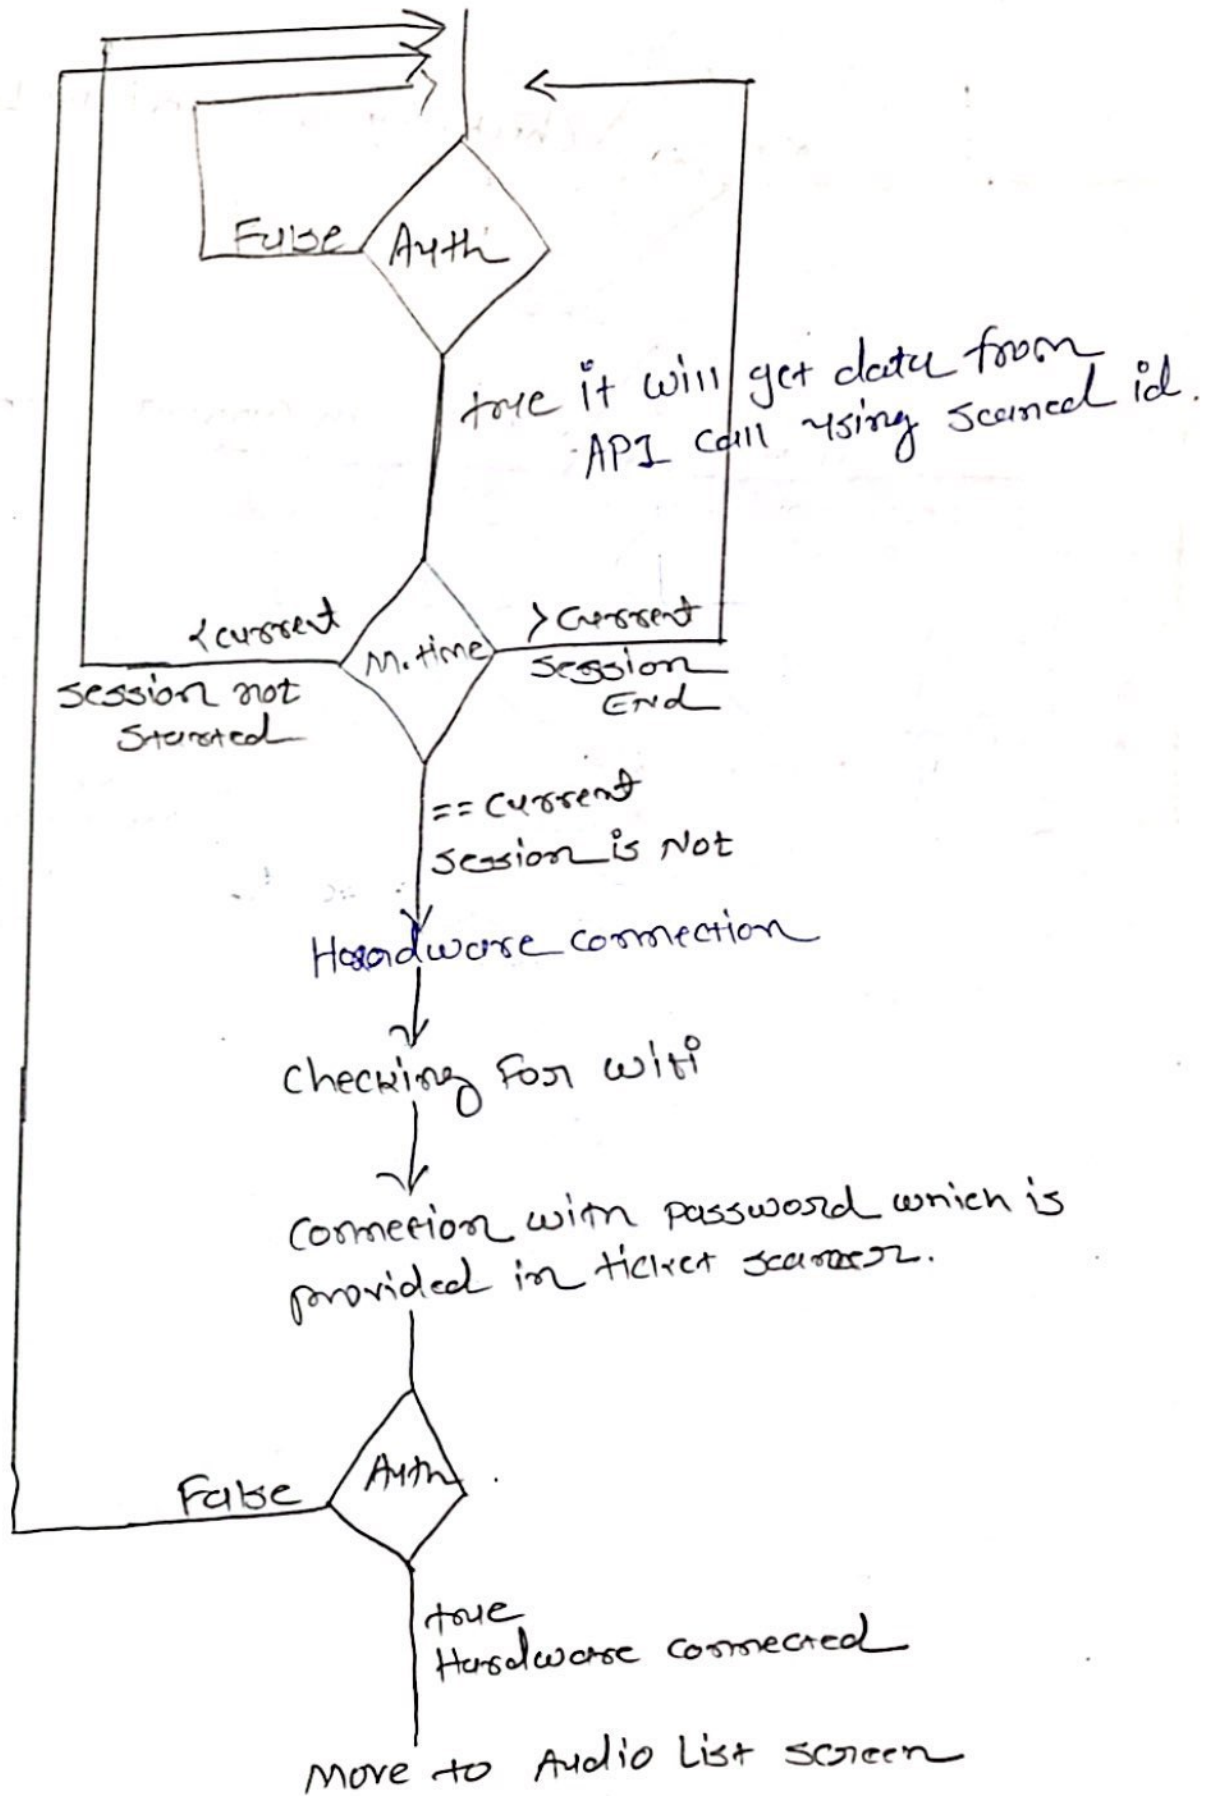 False
Auth
true it will get data from
API call using scaned id.
<current
M.time
>current
session not
started
session
End
== current
session is Not
Hardware connection
checking For wifi
connection with password which is
provided in ticket scanner.
Auth
False
true
Hardware connected
Move to Audio List screen